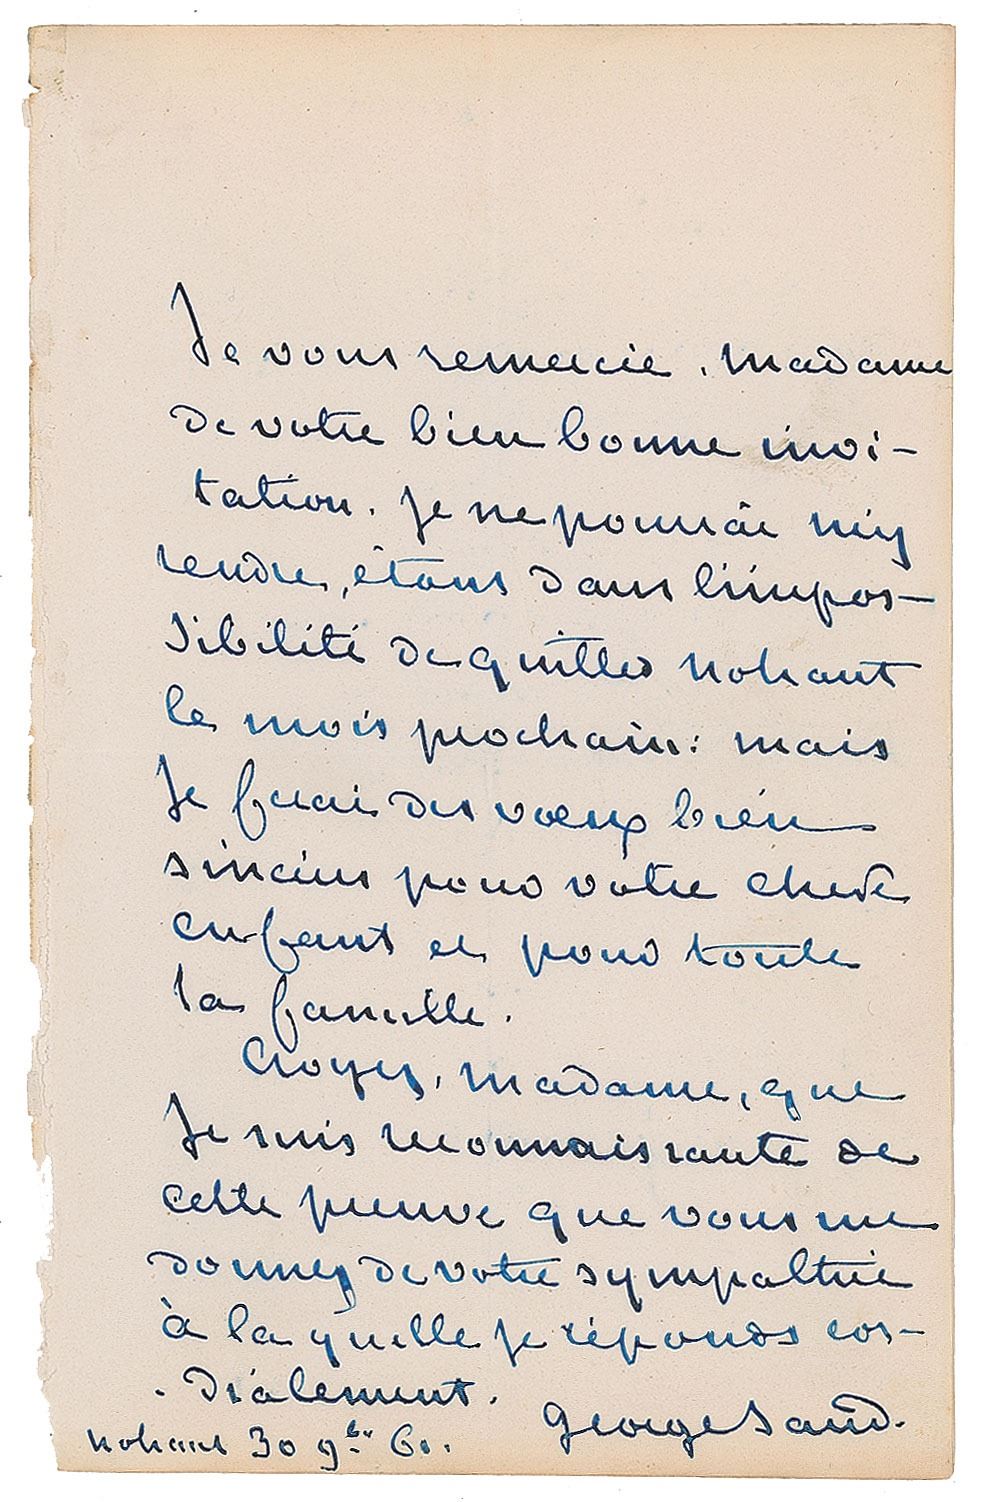 Je vous remercie, madame
de votre bien bonne invi-
tation. Je ne pourrai m'y
rendre, étant dans l'impos-
sibilité de quitter Nohant
le mois prochain: mais
Je ferai des vœux bien
sincères pour votre chere
enfant et pour toute
la famille.
Croyez, madame, que
Je suis reconnaissante de
cette preuve que vous me
donnez de votre sympathie
à la quelle je réponds cor-
dialement.
George Sand.
Nohant 30 9bre 60.